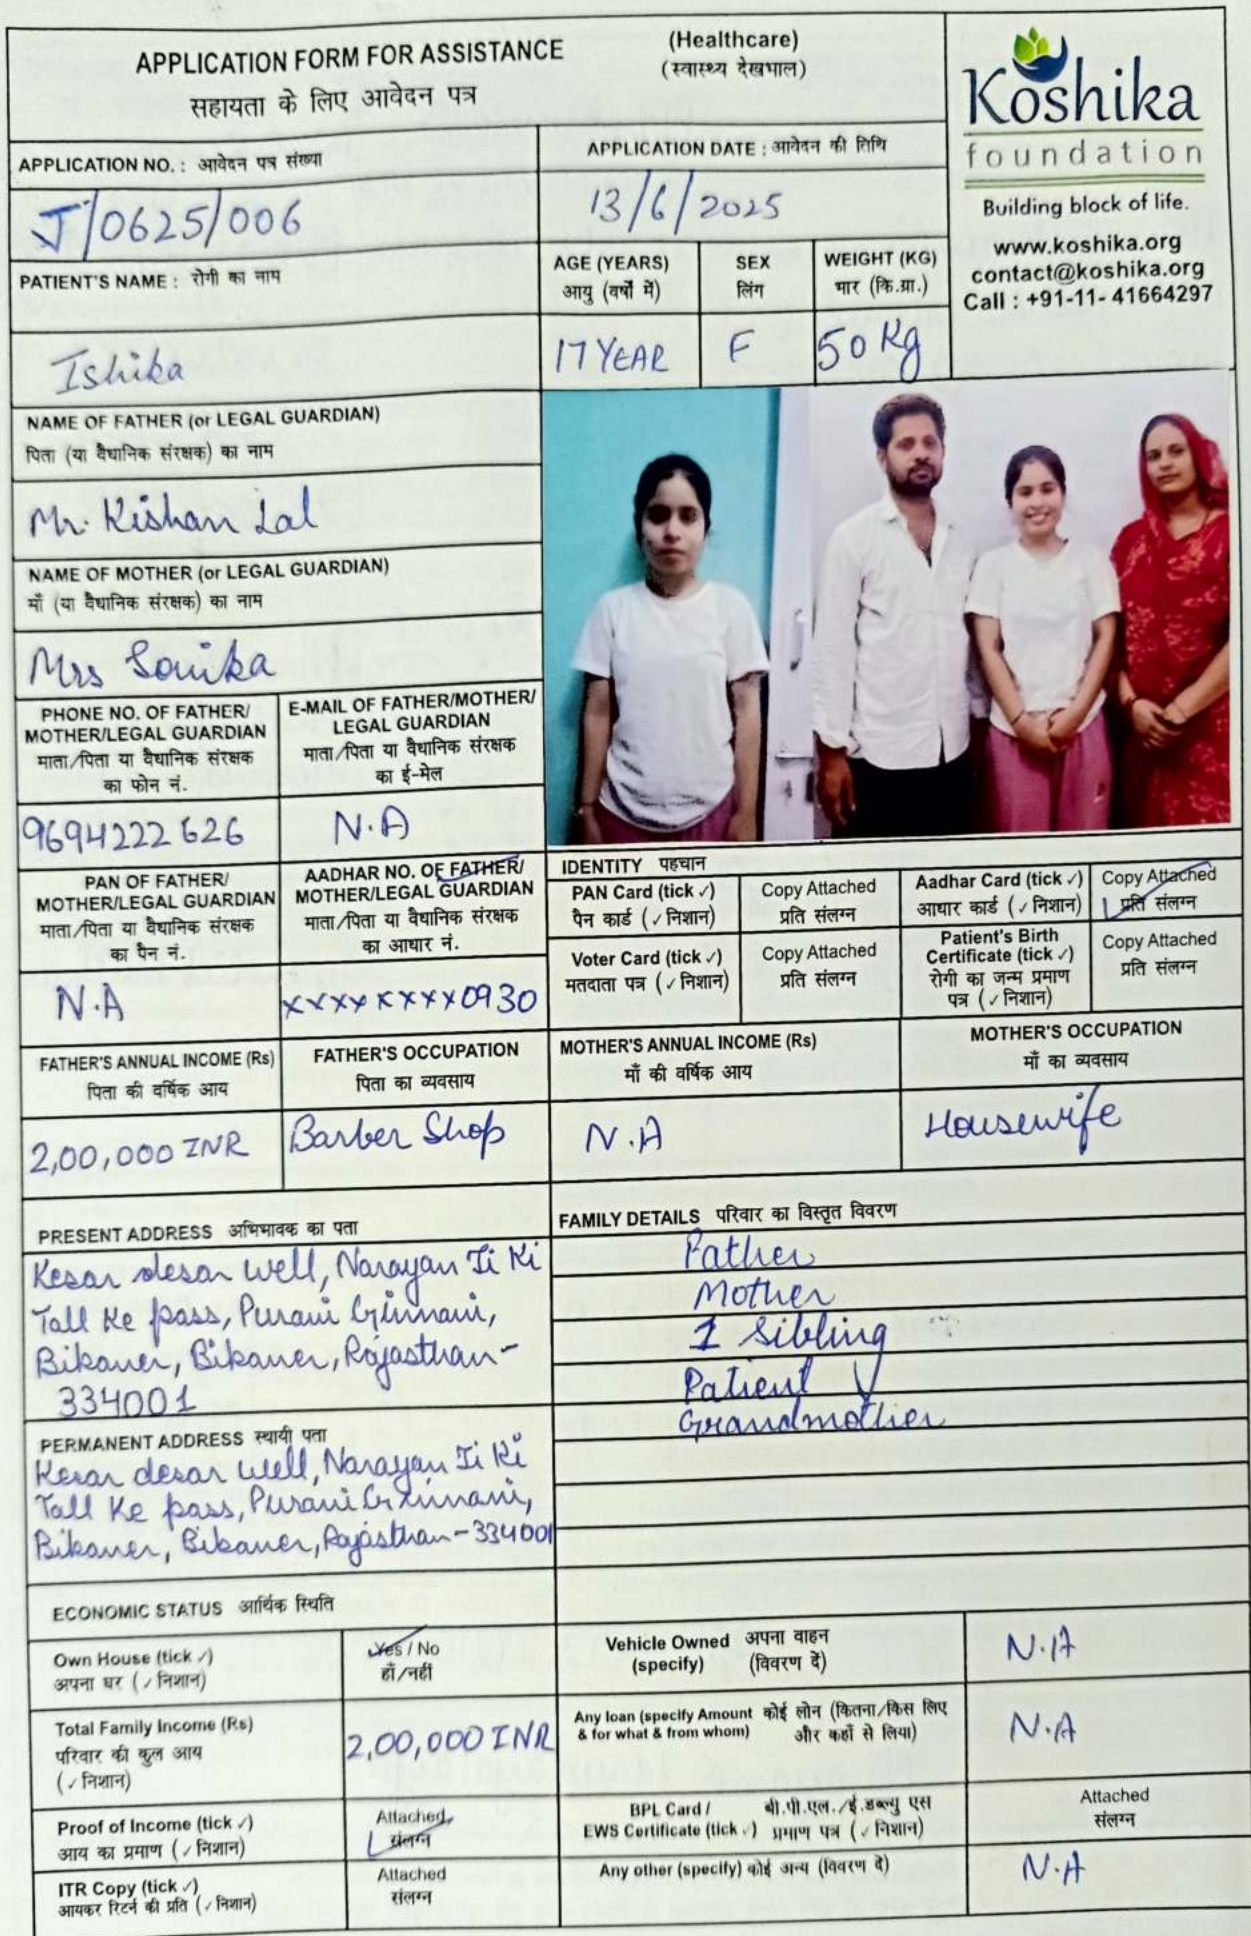 APPLICATION FORM FOR ASSISTANCE
(Healthcare)
सहायता के लिए आवेदन पत्र
(स्वास्थ्य देखभाल)
Koshika
foundation
Building block of life.
www.koshika.org
contact@koshika.org
Call : +91-11- 41664297
APPLICATION NO. : आवेदन पत्र संख्या
APPLICATION DATE : आवेदन की तिथि
J/0625/006
13/6/2025
PATIENT'S NAME : रोगी का नाम
AGE (YEARS)
आयु (वर्षो में)
SEX
लिंग
WEIGHT (KG)
भार (कि.ग्रा.)
Ishika
17 YEAR
F
50 Kg
NAME OF FATHER (or LEGAL GUARDIAN)
पिता (या वैधानिक संरक्षक) का नाम
Mr. Kishan Lal
NAME OF MOTHER (or LEGAL GUARDIAN)
माँ (या वैधानिक संरक्षक) का नाम
Mrs Sonika
PHONE NO. OF FATHER/
MOTHER/LEGAL GUARDIAN
माता/पिता या वैधानिक संरक्षक
का फोन नं.
E-MAIL OF FATHER/MOTHER/
LEGAL GUARDIAN
माता/पिता या वैधानिक संरक्षक
का ई-मेल
9694222626
N.A
PAN OF FATHER/
MOTHER/LEGAL GUARDIAN
माता/पिता या वैधानिक संरक्षक
का पैन नं.
AADHAR NO. OF FATHER/
MOTHER/LEGAL GUARDIAN
माता/पिता या वैधानिक संरक्षक
का आधार नं.
N.A
xxxxxxxx0930
IDENTITY पहचान
PAN Card (tick ✓)
पैन कार्ड (✓निशान)
Copy Attached
प्रति संलग्न
Aadhar Card (tick ✓)
आधार कार्ड (✓निशान)
Copy Attached
प्रति संलग्न
Voter Card (tick ✓)
मतदाता पत्र (✓निशान)
Copy Attached
प्रति संलग्न
Patient's Birth
Certificate (tick ✓)
रोगी का जन्म प्रमाण
पत्र (✓निशान)
Copy Attached
प्रति संलग्न
FATHER'S ANNUAL INCOME (Rs)
पिता की वर्षिक आय
FATHER'S OCCUPATION
पिता का व्यवसाय
MOTHER'S ANNUAL INCOME (Rs)
माँ की वर्षिक आय
MOTHER'S OCCUPATION
माँ का व्यवसाय
2,00,000 INR
Barber Shop
N.A
Housewife
PRESENT ADDRESS अभिभावक का पता
Kesar desar well, Narayan Ji Ki
Tall Ke pass, Purani Ginnani,
Bikaner, Bikaner, Rajasthan-
334001
PERMANENT ADDRESS स्थायी पता
Kesar desar well, Narayan Ji Ki
Tall Ke pass, Purani Ginnani,
Bikaner, Bikaner, Rajasthan-334001
FAMILY DETAILS परिवार का विस्तृत विवरण
Father
Mother
1 Sibling
Patient
Grandmother
ECONOMIC STATUS आर्थिक स्थिति
Own House (tick ✓)
अपना घर (✓निशान)
Yes / No
हाँ/नहीं
Vehicle Owned अपना वाहन
(specify) (विवरण दें)
N.A
Total Family Income (Rs)
परिवार की कुल आय
(✓निशान)
2,00,000 INR
Any loan (specify Amount कोई लोन (कितना/किस लिए
& for what & from whom) और कहाँ से लिया)
N.A
Proof of Income (tick ✓)
आय का प्रमाण (✓निशान)
Attached
संलग्न
BPL Card / बी.पी.एल./ई.डब्ल्यु एस
EWS Certificate (tick ✓) प्रमाण पत्र (✓निशान)
Attached
संलग्न
ITR Copy (tick ✓)
आयकर रिटर्न की प्रति (✓निशान)
Attached
संलग्न
Any other (specify) कोई अन्य (विवरण दें)
N.A